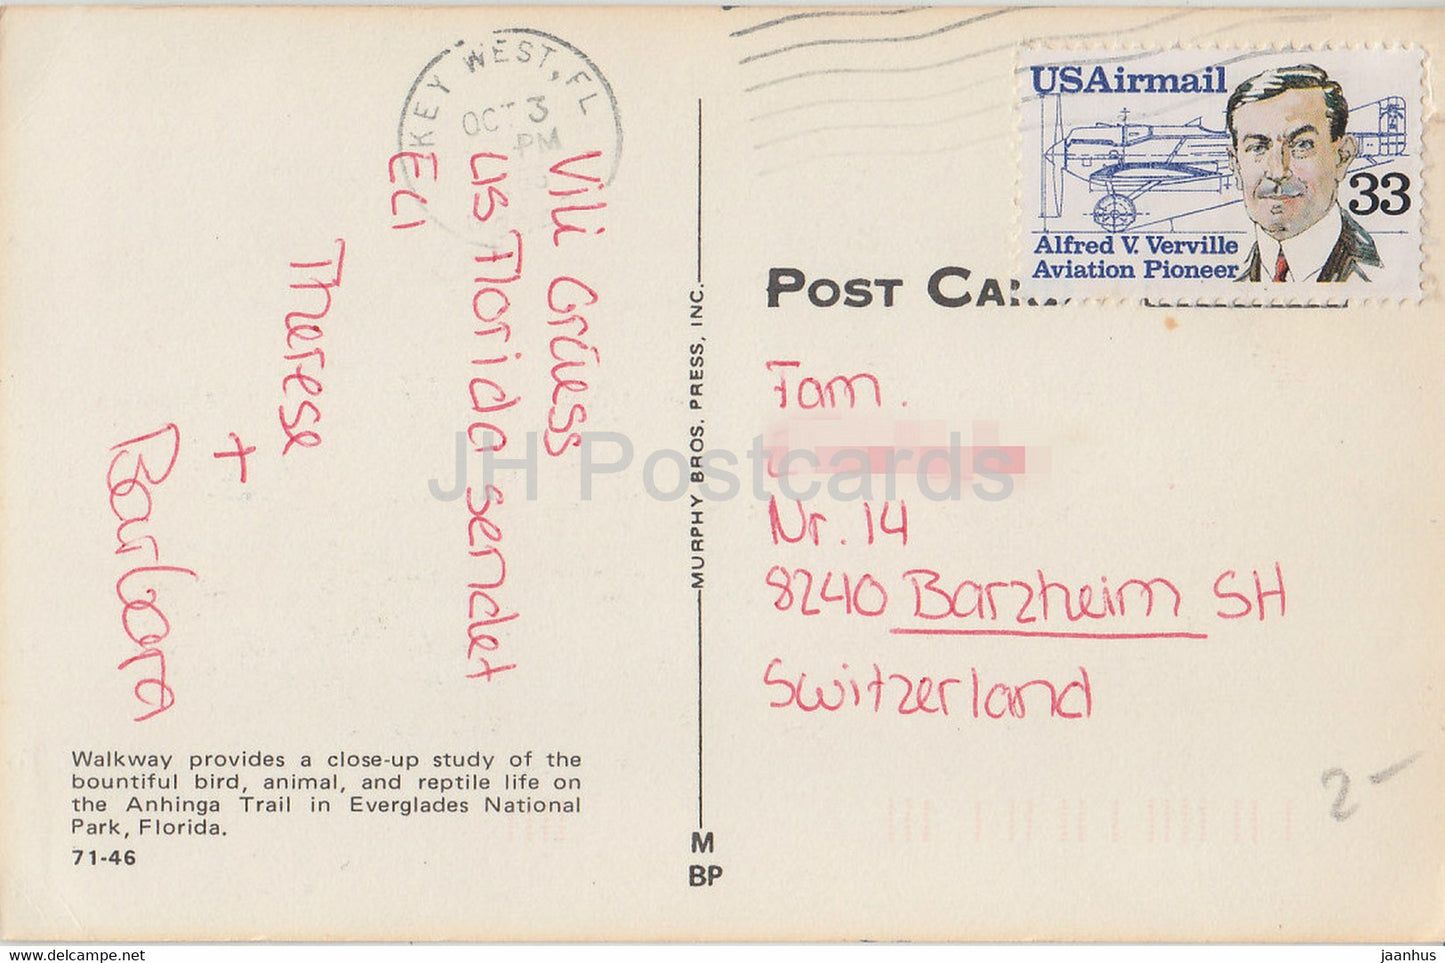 KEY WEST, FL
OCT 3
PM
USAirmail
33
Alfred V. Verville
Aviation Pioneer
Vili Grüess
us Florida sendet
Eu
Therese
+
Barbara
Walkway provides a close-up study of the
bountiful bird, animal, and reptile life on
the Anhinga Trail in Everglades National
Park, Florida.
71-46
MURPHY BROS. PRESS, INC.
M
BP
POST
Fam.
Nr. 14
8240 Barzheim SH
Switzerland
2-
JH Postcards
www.delcampe.net
jaanhus